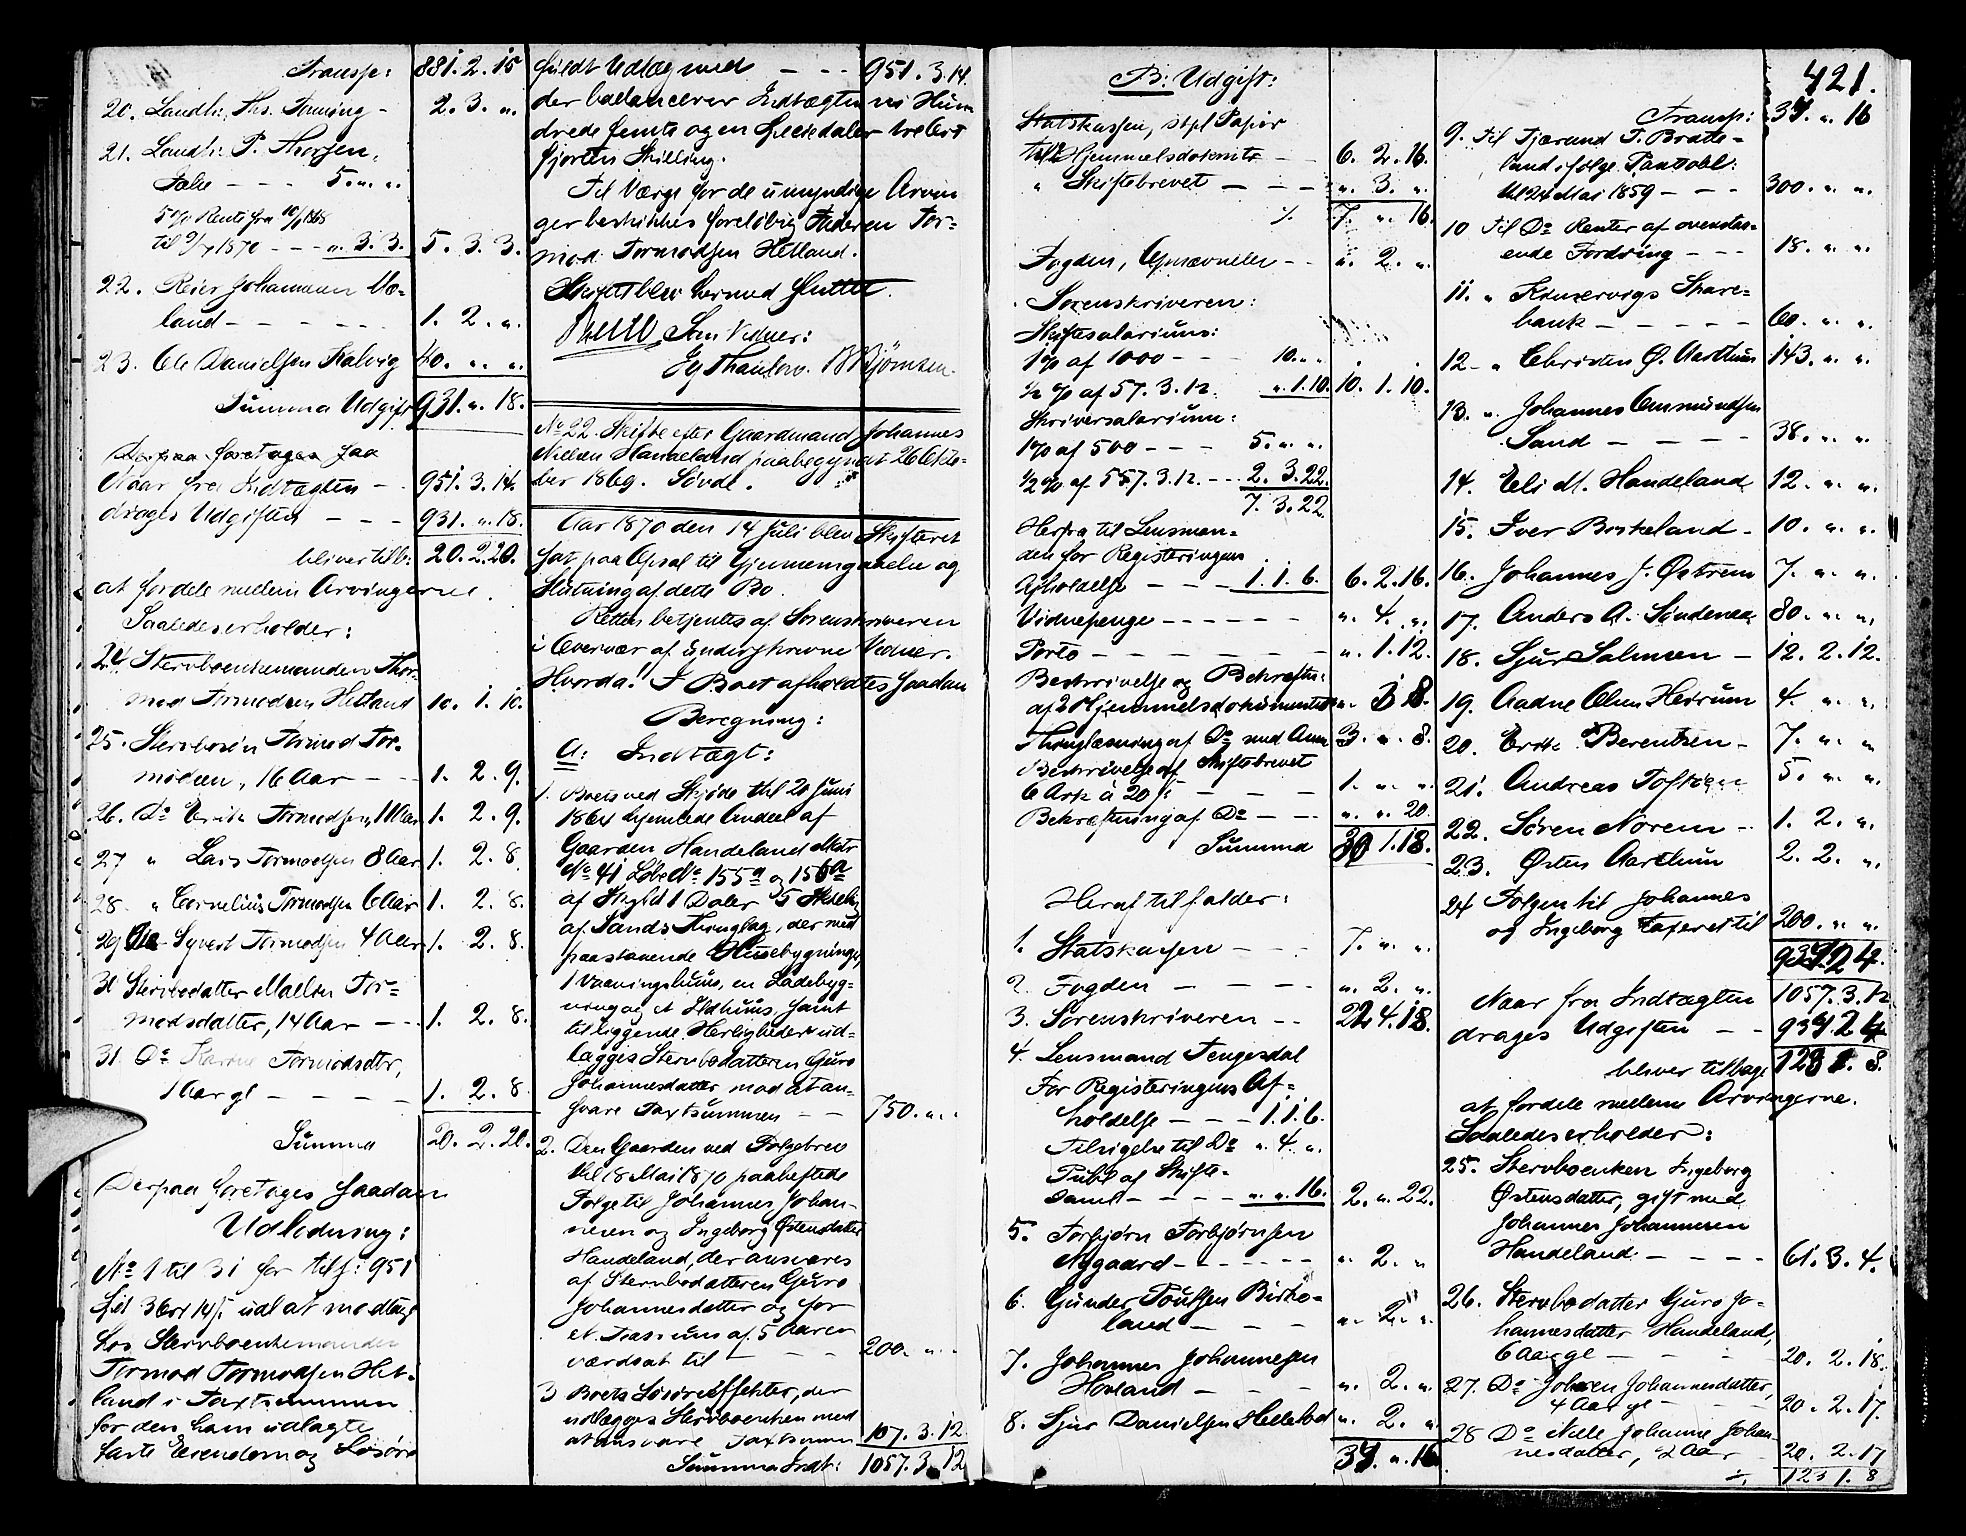 Transp: 881. 2. 15
20. Landh: Ths. Torning - 2. 3. "
21. Landh: P. Thorsen,
5. " "
5 % Rente fra 10/ 1868
til 9/7 1870 - - " 3. 3. 5. 3. 3.
22. Reier Johannesen Mo-
land - - - - 1. 2. "
23. Ole Danielsen Kalvig 40. " "
Summa Udgift 931. " 18.
Derpaa foretages saa
Naar fra Indtægten - 951. 3. 14.
drages Udgiften - - - 931. " 18.
bliver tilb: 20. 2. 20.
at fordele mellem Arvingerne.
Saaledes erholder:
24 Stervboenkemanden Thor-
mod Tormodsen Hetland 10. 1. 10.
25. Stervbosøn Tormod Tor-
modsen, 16 Aar - - 1. 2. 9.
26. Do Erik Tormodsen, 11 Aar 1. 2. 9.
27 " Lars Tormodsen 8 Aar 1. 2. 8.
28 " Cornelius Tormodsen 6 Aar 1. 2. 8.
29 Syvert Tormodsen 4 Aar 1. 2. 8.
30 Stervbodatter Malene Tor-
modsdatter, 14 Aar - - 1. 2. 8.
31. Do Karine Tormodsdtr,
1 Aar gl - - - - 1. 2. 8
Summa 20. 2. 20.
Derpaa foretoges saadan
Udlodning:
No 1 til 31 for tils: 951
Spd 3 Ort 14 s udl at modtage
hos Stervboenkemanden
Tormod Tormodsen Het-
land i Taxtsummen
for den ham udlagte
faste Eiendom og Løsøre
fuldt Udlæg med - - - 951. 3. 14.
der balancerer Indtægten ni Hun
drede femti og en Speciedaler tre Ort
fjorten Skilling.
Til Værge for de umyndige Arvin
ger beskikkes foreløbig Faderen Tor-
mod Tormodsen Hetland.
Skiftet blev hermed sluttet.
Som Vidner:
Jg Thaulow. B Bjørnsen.
No 22. Skifte efter Gaardmand Johannes
Nielsen Handeland paabegyndt 26 Okto-
ber 1869. Søvde.
Aar 1870 den 14 Juli blev Skifteret
sat paa Opsal til Gjennemgaaelse og
Slutning af dette Bo.
Retten betjentes af Sorenskriveren
i Overvær af Underskrevne Vidner.
Hvorda! I Boet afholdtes saadan
Beregning:
A: Indtægt:
1. Boets ved Skjøde thl 20 Juni
1864 hjemlede Andeel af
Gaarden Handeland Matr
No 41 Løbe No 155a og 156a
af Skyld 1 Daler 5 Skill
af Sands Thinglag, der med
paastaaende Husebygninger,
1 Vaaningshuus, en Ladebyg-
ning og et Ildhuus samt
tilliggende Herligheder ud-
lægges Stervbodatteren Guro
Johannesdatter mod at an-
svare Taxtsummen - - 750. " "
2. Den Gaarden ved Folgebrev
thl 18 Mai 1870 paaheftede
Folge til Johannes Johan-
nesen og Ingeborg Østensdatter
Handeland, der ansvares
af Stervbodatteren Guro
Johannesdatter og for
et Tidsrum af 5 Aar er
værdsat til - - - 200. " "
3 Boets Løsøreeffekter, der
udlægges Stervboenken mod
at ansvare Taxtsummen 107. 3. 12.
Summa Indt: 1057. 3. 12
B: Udgift:
Statskassen, stpl Papir
til 2 Hjemmelsdokmtr - - 6. 2. 16.
" Skiftebrevet - - - " 3. "
7. " 16.
Fogden, Opnævnelse - - " 2. "
Sorenskriveren:
Skiftesalarium:
1 % af 1000 - - 10. " "
1/2 % af 57. 3. 12. " 1. 10. 10. 1. 10.
Skriversalarium:
1 % af 500 - - - 5. " "
1/2 % af 557. 3. 12. - - 2. 3. 22.
7. 3. 22.
Herfra til Lensman-
den for Registeringens
Afholdelse - - - 1. 1. 6. 6. 2. 16.
Vidnepenge - - - - - " 4. "
Porto - - - - - - " 1. 12.
Beskrivelse og Bekræftn:
af 2 Hjemmelsdokumenter " 8.
Thinglæsning af Do med Anm 3. " 8.
Beskrivelse af Skiftebrevet
6 Ark à 20 s - - - 1. " "
Bekræftning af Do - - " " 20.
Summa 30 1. 18.
Heraf tilfalder:
1. Statskassen - - - 7. " "
2. Fogden - - - - " 2. "
3. Sorenskriveren - - 22. 4. 18.
4. Lensmand Tengesdal
For Registeringens Af-
holdelse - - - 1. 1. 6.
Tilsigelse til Do " 4. "
Publ af Skifte-
saml - - - - " " 16. 2. " 22.
5. Torbjørn Torbjørnsen
Nygaard - - - - - " 2. "
6. Gunder Poulsen Birke-
land - - - " 2. "
7. Johannes Johannesen
Hovland - - - " 2. "
8. Sjur Danielsen Helleland " 2. "
34. " 16
421.
Transp: 34. " 16
9. Til Tjærand T. Bratte-
land ifølge Pantobl:
thl 24 Mai 1859 - - - 300. " "
10 Til Do Renter af ovenstaa-
ende Fordring - - - 18. " "
11. " Kinservigs Spare-
bank - - - - - 60. " "
12 - " Christen O. Aarthun 143. " "
13. " Johannes Amundsen
Sand - - - - 38. " "
14. Eli M. Handeland 12. " "
15. Iver Birkeland - 10. " "
16. Johannes J. Østrem 7. " "
17. Anders A. Søndenaa 80. " "
18. Sjur Salmsen - 12. 2. 12.
19. Aadne Olsen Herrum 4. " "
20. Erik Berentsen - 7. " "
21. Andreas 5. " "
22. Søren Norem - 1. 2. "
23. Østen Aarthun 2. 2. "
24 Folgen til Johannes
og Ingeborg taxeret til 200. " "
934. 2. 4.
Naar fra Indtægten 1057. 3. 12
drages Udgiften - - 934 2 4
bliver tilbage 123 1. 8.
at fordele mellem Arvingerne.
Saaledes erholder:
25. Stervboenken Ingeborg
Østensdatter, gift med
Johannes Johannesen
Handeland - - - - 61. 3. 4.
26. Stervbodatter Guro Jo-
hannesdatter Handeland,
6 Aar gl - - - 20. 2. 18.
27. Do Johannesdatter,
4 Aar gl - - - 20. 2. 17.
28 Do Nille Johanne Johan-
nesdatter, 2 Aar - 20. 2. 17
123 1. 8